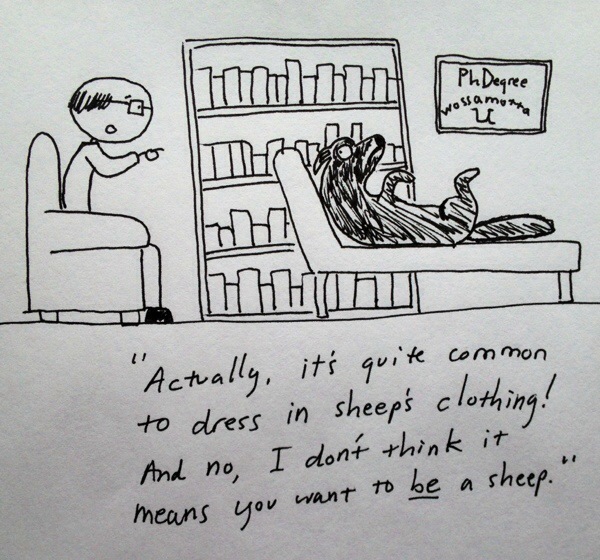 PhDegree
wossamotta
U
"Actually, it's quite common
to dress in sheep's clothing!
And no, I don't think it
means you want to be a sheep."